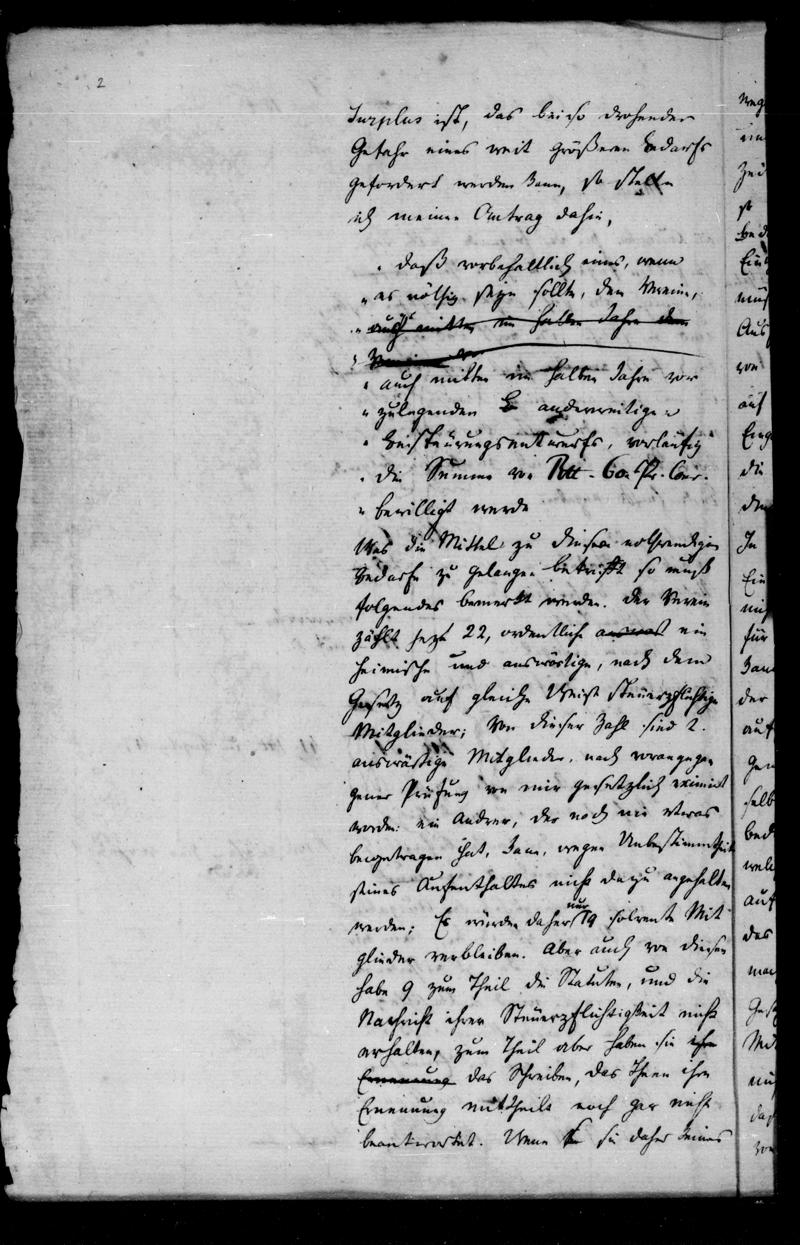 2
Surplus ist, das bei so drohender
Gefahr eines weit größeren Bedarfs
gefordert werden kann, so stelle
ich meinen Antrag dahin,
" daß vorbehaltlich eines, wenn
" es nöthig seyn sollte, dem Verein,
" auch mitten im halben Jahre dem
" Verein vor
" auch mitten im halben Jahre vor
" zulegenden B anderweitigen
" Besteurungsentwurfs, vorläufig
" die Summe von Rtl. 60. Pr. Cour.
" bewilligt werde
Was die Mittel zu diesem nothwendigen
Bedarfe zu gelangen betrifft so muß
folgendes bemerkt werden. Der Verein
zählt jezt 22, ordentliche ein
heimische und auswärtige, nach dem
Gesetz auf gleiche Weise steuerpflichtige
Mitglieder; Von dieser Zahl sind 2.
auswärtige Mitglieder, nach vorangegan
gener Prüfung von mir gesetzlich eximirt
worden: ein Andrer, der noch nie etwas
beigetragen hat, kann, wegen Unbestimmtheit
seines Aufenthaltes nicht dazu angehalten
werden; Es würden daher nur 19 solvente Mit
glieder verbleiben. Aber auch von diesen
habe 9 zum Theil die Statuten, und die
Nachricht ihrer Steuerpflichtigkeit nicht
erhalten, zum Theil aber haben sie ihre
Ernennung das Schreiben, das Ihnen ihre
Ernennung mittheilt noch gar nicht
beantwortet. Wenn sie daher keines